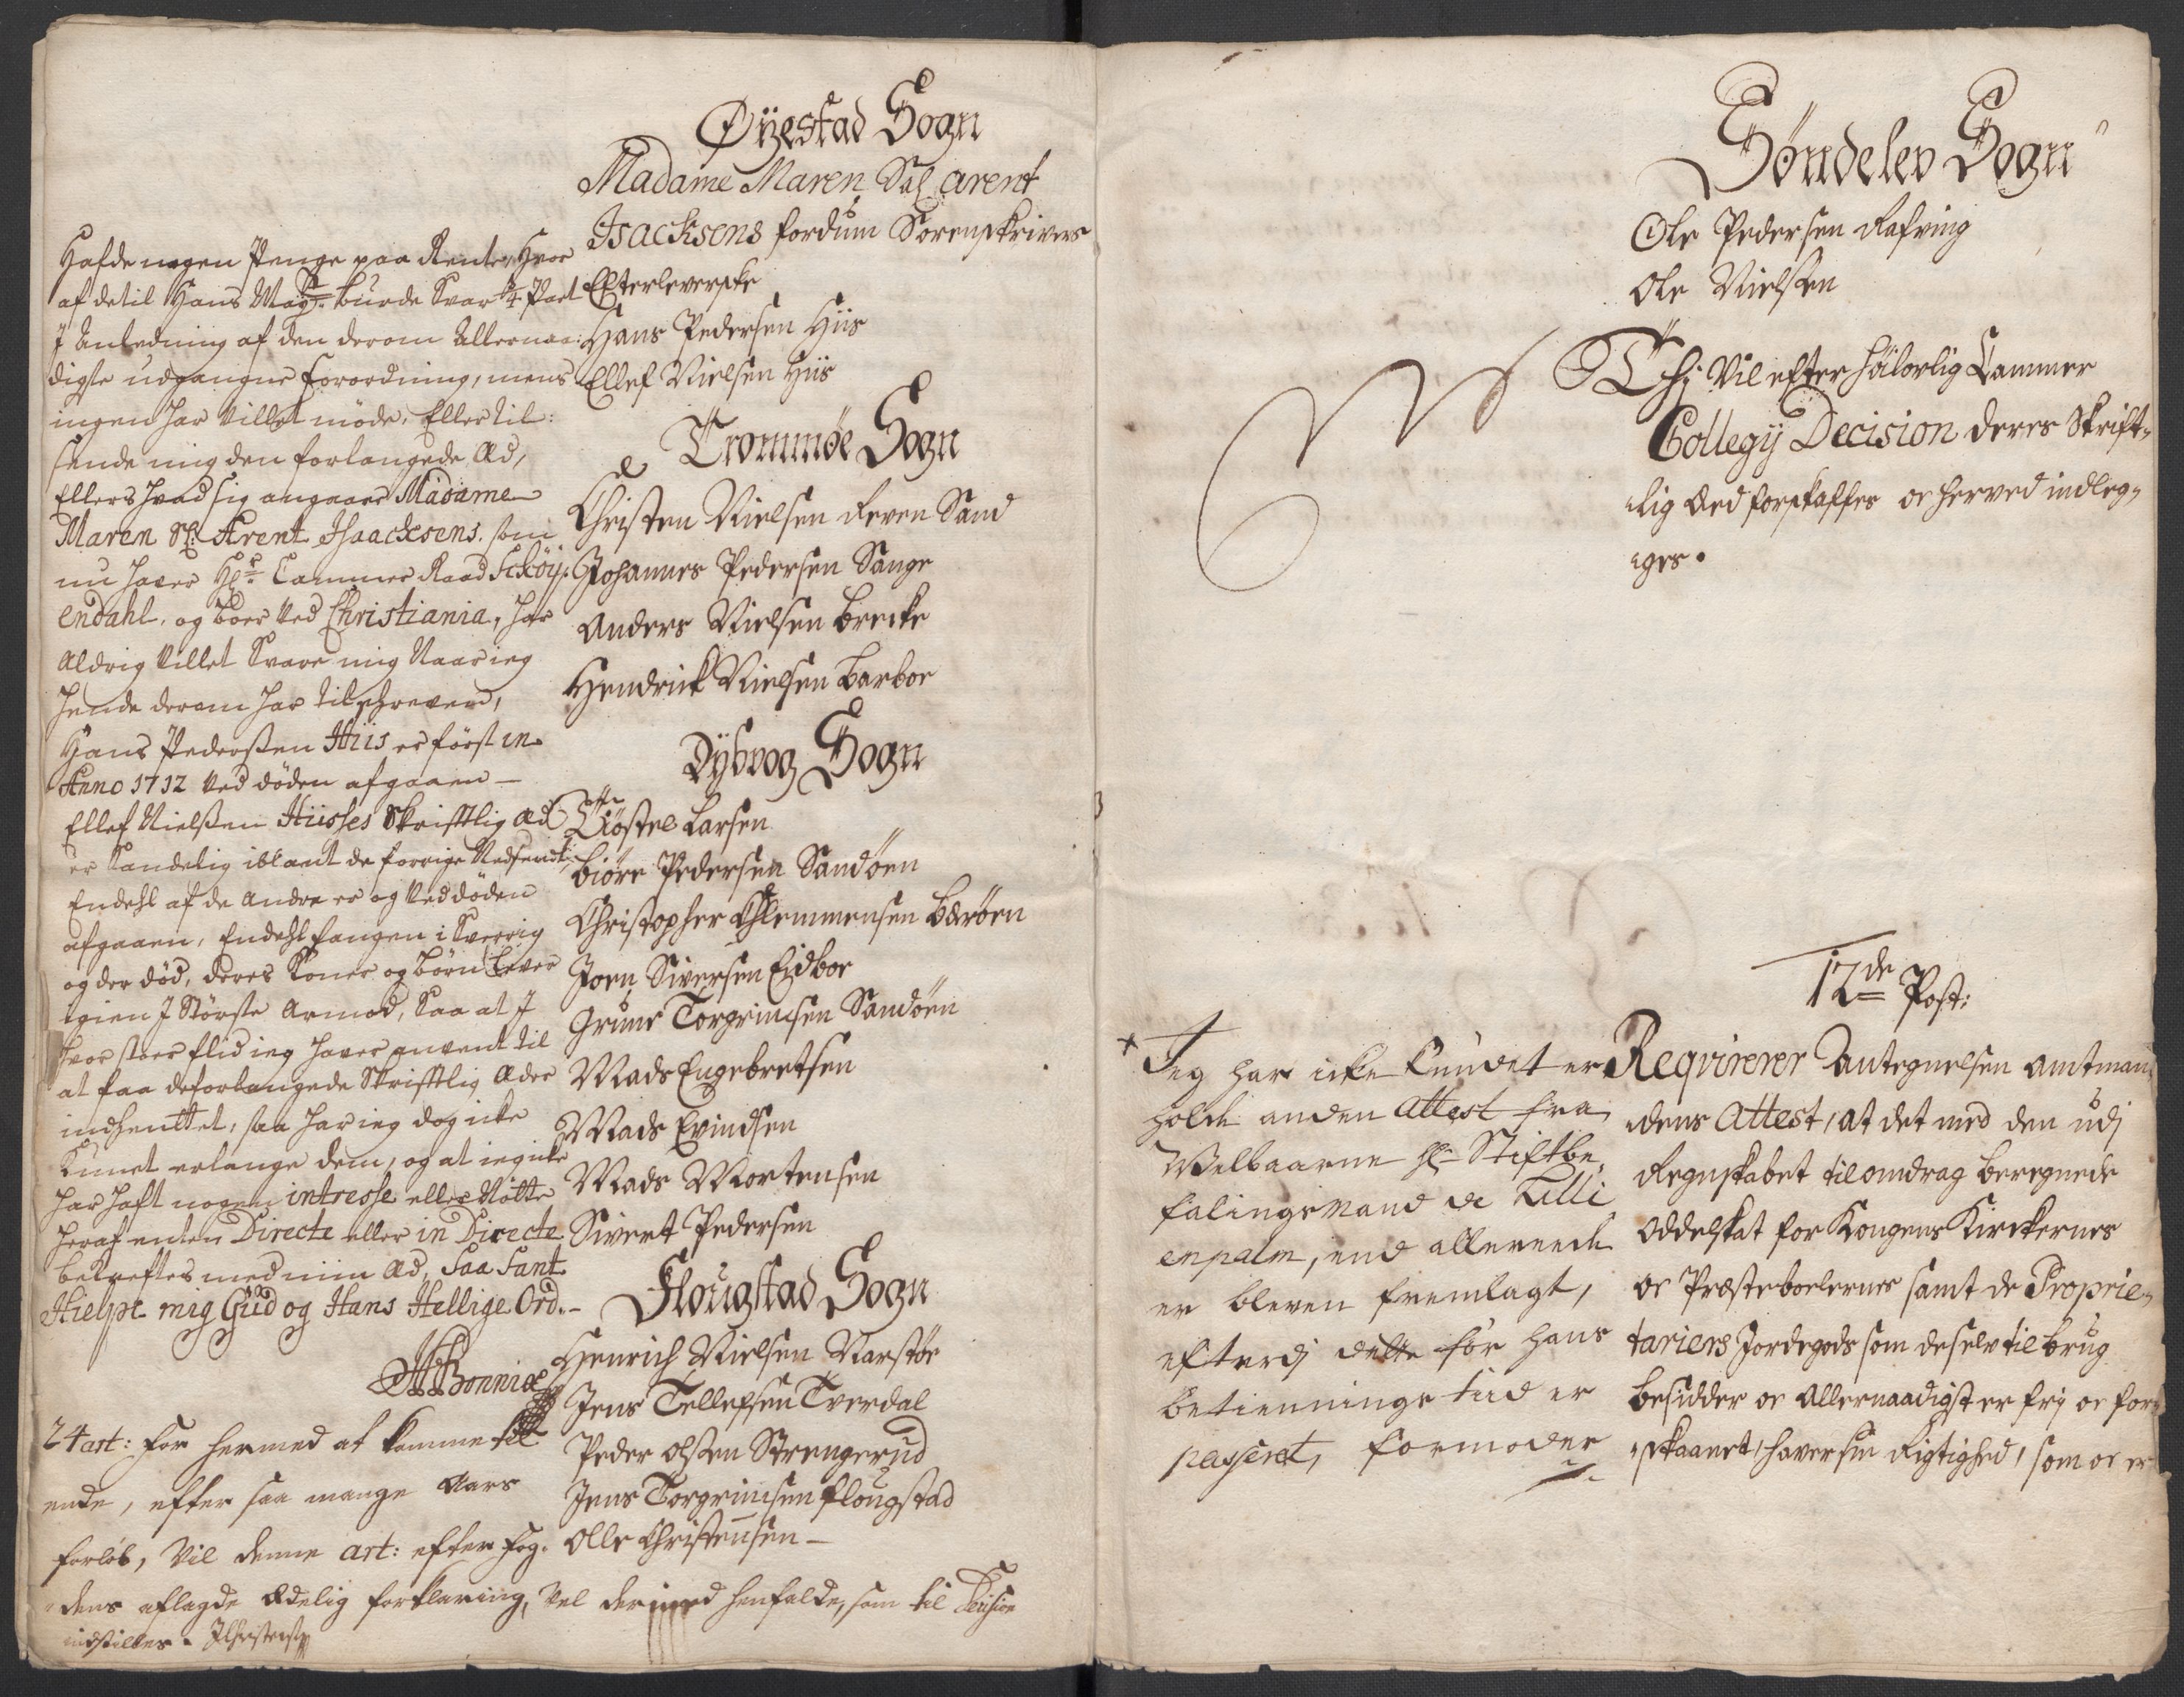 Øÿestad Sogn
Madame Maren Sal arent
Isacksens fordum Sorenskrivers
Efterleverske
Hans Pedersen Hiis
Ellef Nielsen Hiis
Trommøe Sogn
Christen Nielsen Reven Sand
Johannes Pedersen Sange
Anders Nielsen Brecke
Hendrick Nielsen Barboe
Dybvog Sogn
Tøstel Larsen
Biørn Pedersen Sandøen
Christopher Chlemmensen Bærøen
Joen Siversen Eidboe
Grunr Torgrimsen Sandøen
Mads Engebretsen
Mads Evindsen
Mads Mortensen
Sivert Pedersen
Flougstad Sogn
Henrich Nielsen Narstøe
Jens Tellefsen Tverdal
Peder Olsen Strengerud
Jens Torgrimsen Flougstad
Olle Christensen –
Hafde nogen Penge paa Rente, hvor
af de til Hans May.t burde Svar 1/4 Part
J Anledning af den derom Allernaa:
digste udgangne Forordning, mens
ingen har villet møde, Eller til:
sende mig den forlangede Æd,
Ellers hvad sig angaar Madame
Maren Sl: Arent Isaacksens. som
nu haver Hl.r Cammer Raad Schøy:
endahl, og boer ved Christiania, har
Aldrig villet Svare mig Naar ieg
hende derom har tilskreved,
Hans Pedersen Hiis er først in
Anno 1712 ved døden afgaaen –
Ellef Nielsen Hiisses Skrifftlig Æd
er Sandelig iblant de forrige Nedsendt,
Endehl af de Andre er og ved døden
afgaaen, Endehl fangen i Sverrig
og der død, deres Koner og børn lever
igien J Største Armod, Saa at J
hvor stoer flid ieg haver anvent til
at faa de forlangede Skrifftlig Æder
indhenttet, saa har ieg dog icke
Kunet erlange dem, og at ieg icke
har haft nogen intresse eller Nøtte
heraf enten Directe eller in Directe
bekreftes med min Æd, Saa Sant
Hielpe mig Gud og Hans Hellige Ord. –
24 art: For hermed at komme til
ende, efter saa mange Aars
forløb, Vil denne art: efter Fog:
dens aflagde Ædelig forklaring, vel dermed henfalde, som til Decision
indstilles.
Søndelev Sogn
Ole Pedersen Rafving
Ole Nielsen
Thj Vil efter høilovlig Cammer
Collegij Decision deres Skrift-
lig Æed forskaffes oc herved indleg-
ges.
12de Post:
Reqvirerer Antegnelsen Amtman-
dens Attest, at det med den udj
Regnskabet til omdrag beregnede
Oddelskat for Kongens Kirckernes
oc Præsteboelernes samt de Proprie-
tariers Jordegods som de selv til brug
besidder oc Allernaadigst er frj oc for-
skaanet, haver sin Rigtighed, som oc er
x Jeg har icke Kundet er
holde anden Attest fra
Welbaarne Hr Stiftbe
falingsmand de Tilli
enpalm, end allereede
er bleven fremlagt,
efterdj dette før hans
betiennings tiid er
passeret, formoder